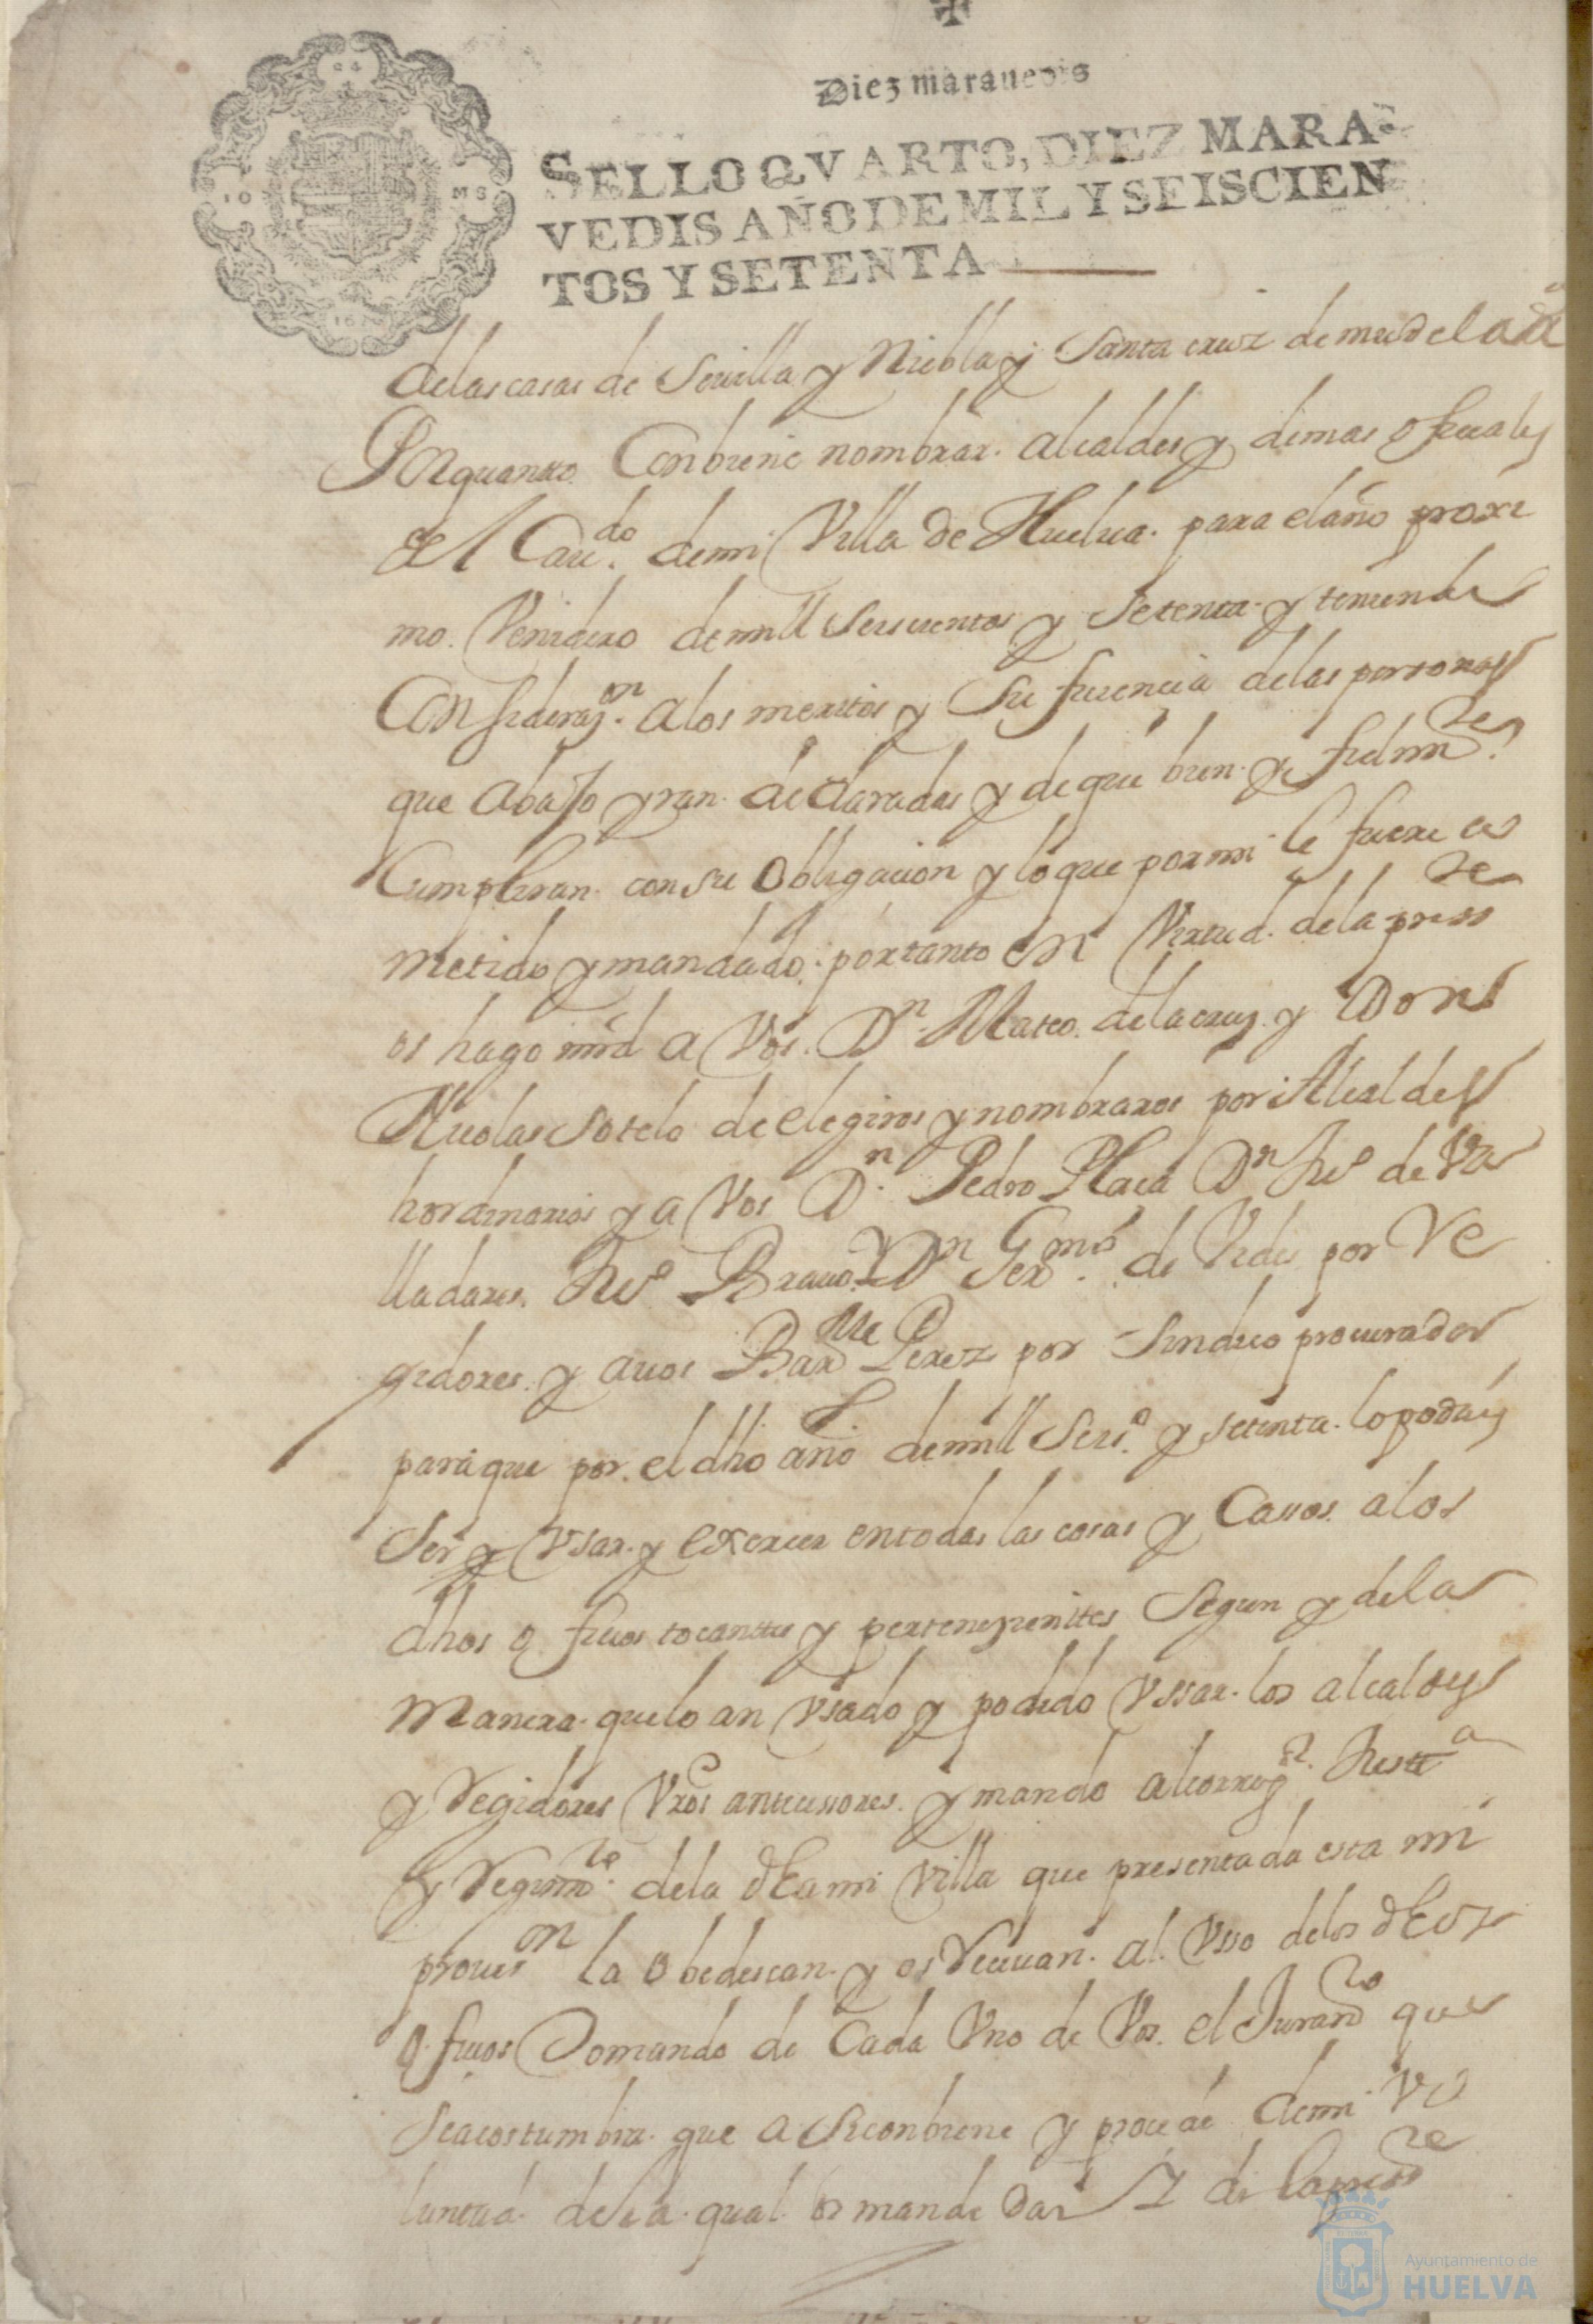 Diez maravedis
SELLO QVARTO, DIEZ MARA-
VEDIS AÑO DE MIL Y SEISCIEN
TOS Y SETENTA
10 MS
1670
delas casas de Seuilla y Niebla y Santa cruz de mudela &a
Por quanto Conbiene nombrar alcaldes y demas ofiziales
del Cau.do de mi Villa de Huelua para el año proxi
mo Venidero de mill Seiscientos y Setenta y teniendo
Considerazon a los meritos y Sufiziencia de las personas
que abajo yran declaradas y de que bien y fielmte
Cumpliran con su Obligacion y lo que por mi le fuere co
metido y mandado por tanto en Virtud de la presste
os hago mrd a Vos Dn Mateo de la cruz y Don
Nicolas Sotelo de elegiros y nombraros por Alcaldes
hordinarios y a Vos Dn Pedro Plaça Dn Juo de Va
lladares Juo Brauo y Dn Germo de Vides por Re
gidores y a uos Barme Perez por Sindico procurador
para que por el dho año de mill Seiso y setenta lo podais
Ser y Vsar y exercer en todas las cosas y Cassos a los
dhos ofizios tocanttes y pertenezienttes Segun y de la
manera que lo an Vsado y podido Vssar los alcaldes
y Regidores Vros antecessores y mando al corregr Justta
y Regimto de la dha mi Villa que presentada esta mi
prouisn la Obedescan y os Reciuan al Vsso de los dhos
ofizios Tomando de Cada Vno de Vos el Juramto que
se acostumbra que asi conbiene y procede de mi Vo
luntad de la qual os mande Dar y di la presste
Ayuntamiento de
HUELVA